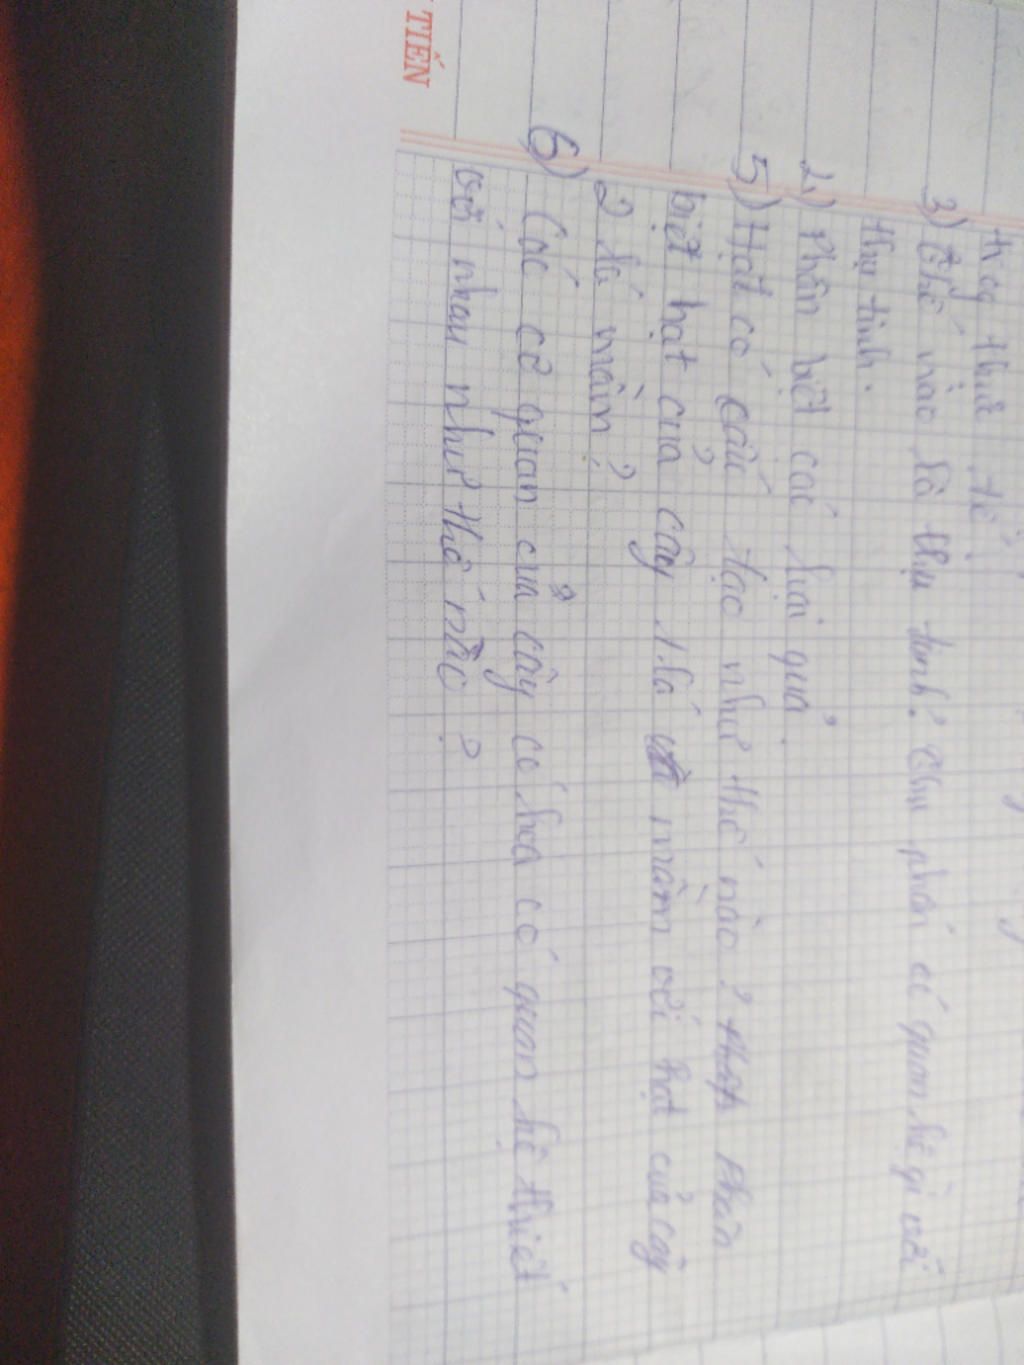 TIẾN
thực tế.
3) Thế nào là thụ tinh? Thụ phấn có quan hệ gì với
thụ tinh.
4) Phân biệt các loại quả.
5) Hạt có cấu tạo như thế nào? Phân
biệt hạt của cây 1 lá mầm với hạt của cây
2 lá mầm?
6) Các cơ quan của cây có hoa có quan hệ thiết
với nhau như thế nào?